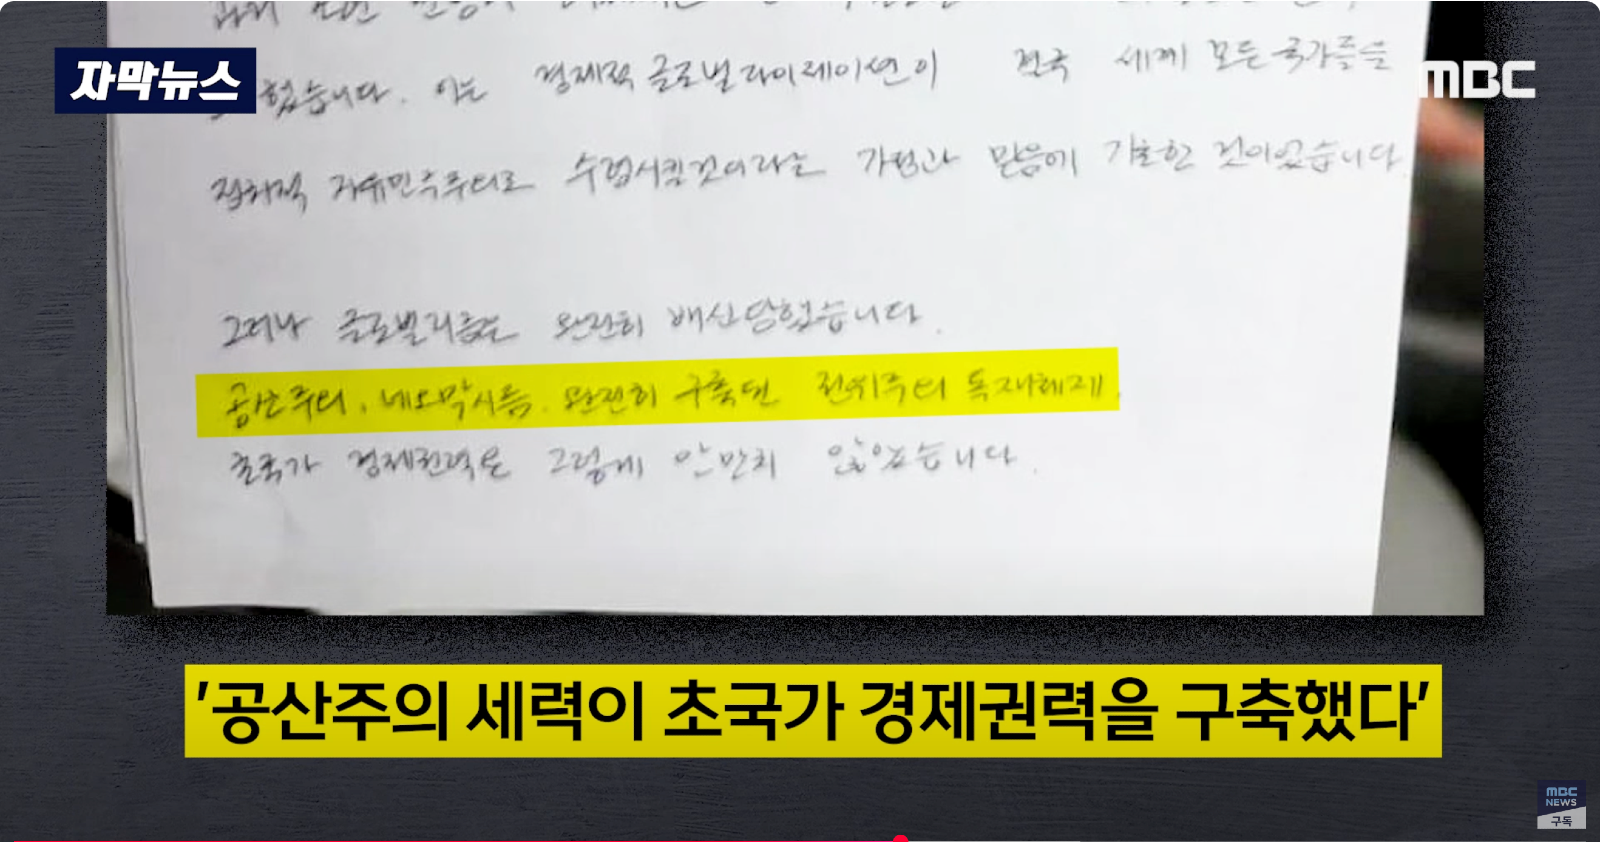 자막뉴스
MBC
했습니다. 이는 경제적 글로벌라이제이션이 전국 세계 모든 국가들을
정치적 자유민주주의로 수렴시킬것이라는 가정과 믿음에 기초한 것이었습니다
그러나 글로벌리즘은 완전히 배신당했습니다.
공산주의, 네오막시즘. 완전히 구축된 전위주의 독재체제.
초국가 경제권력은 그렇게 만만치 않았습니다.
'공산주의 세력이 초국가 경제권력을 구축했다'
MBC
NEWS
구독